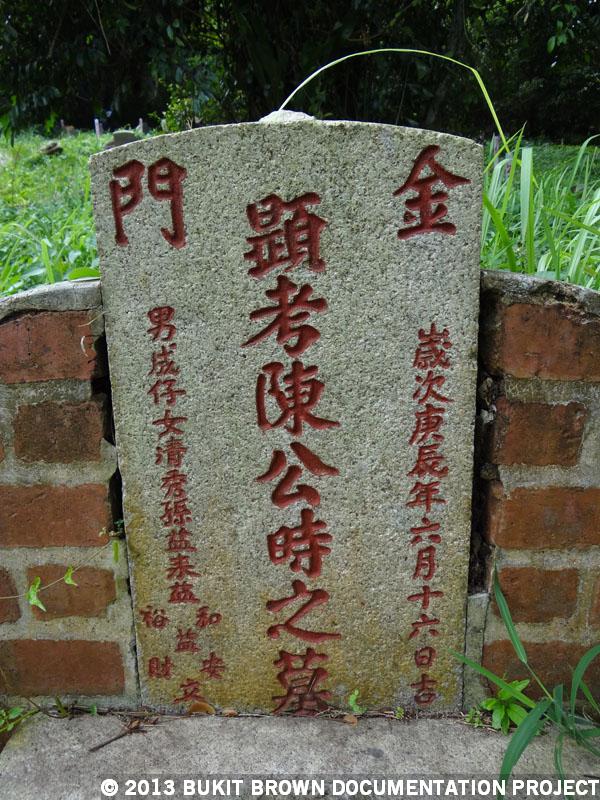 金門
歲次庚辰年六月十六日吉
顯考陳公時之墓
男成仔女清秀孫益來益
和安
益
裕財
立
© 2013 BUKIT BROWN DOCUMENTATION PROJECT